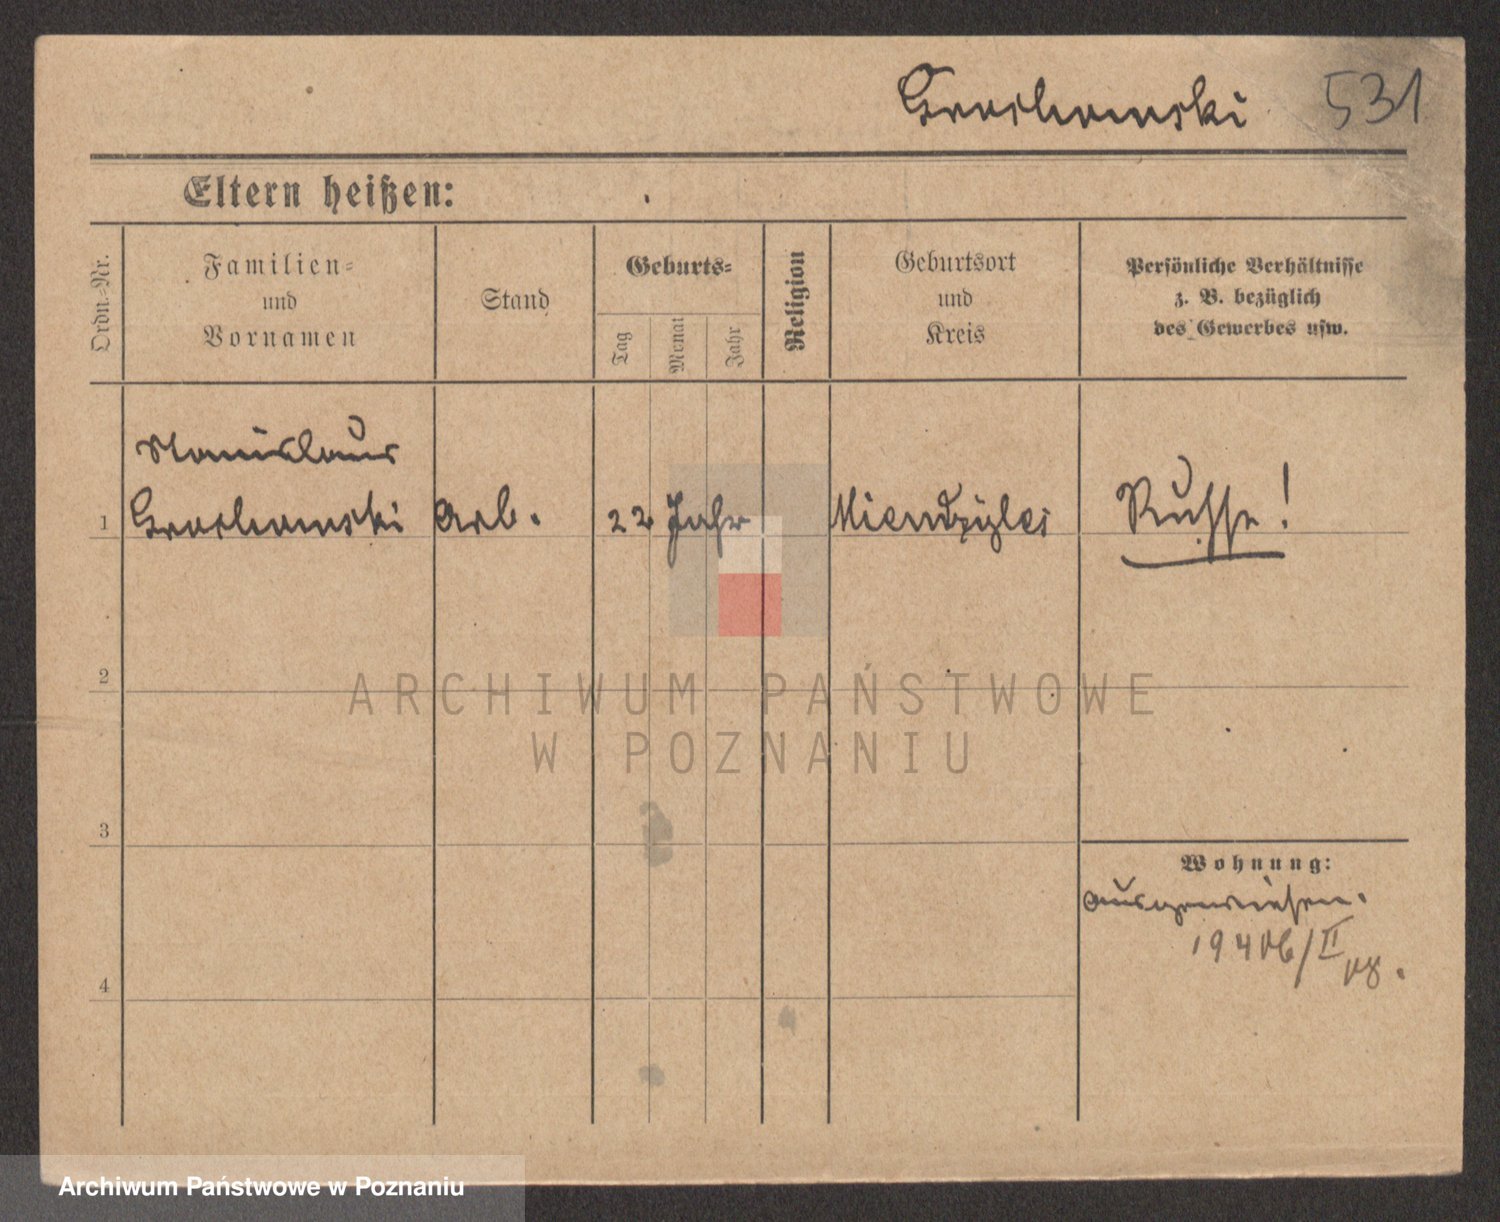 Grochowski 531
Eltern heißen:
Ordn.-Nr.
Familien-
und
Vornamen
Stand
Geburts-
Tag
Monat
Jahr
Religion
Geburtsort
und
Kreis
Persönliche Verhältnisse
z. B. bezüglich
des Gewerbes usw.
Stanislaus
1 Grochowski Arb. 22 Jahr Russe!
2
ARCHIWUM PAŃSTWOWE
W POZNANIU
3
Wohnung:
ausgewiesen.
4
Archiwum Państwowe w Poznaniu